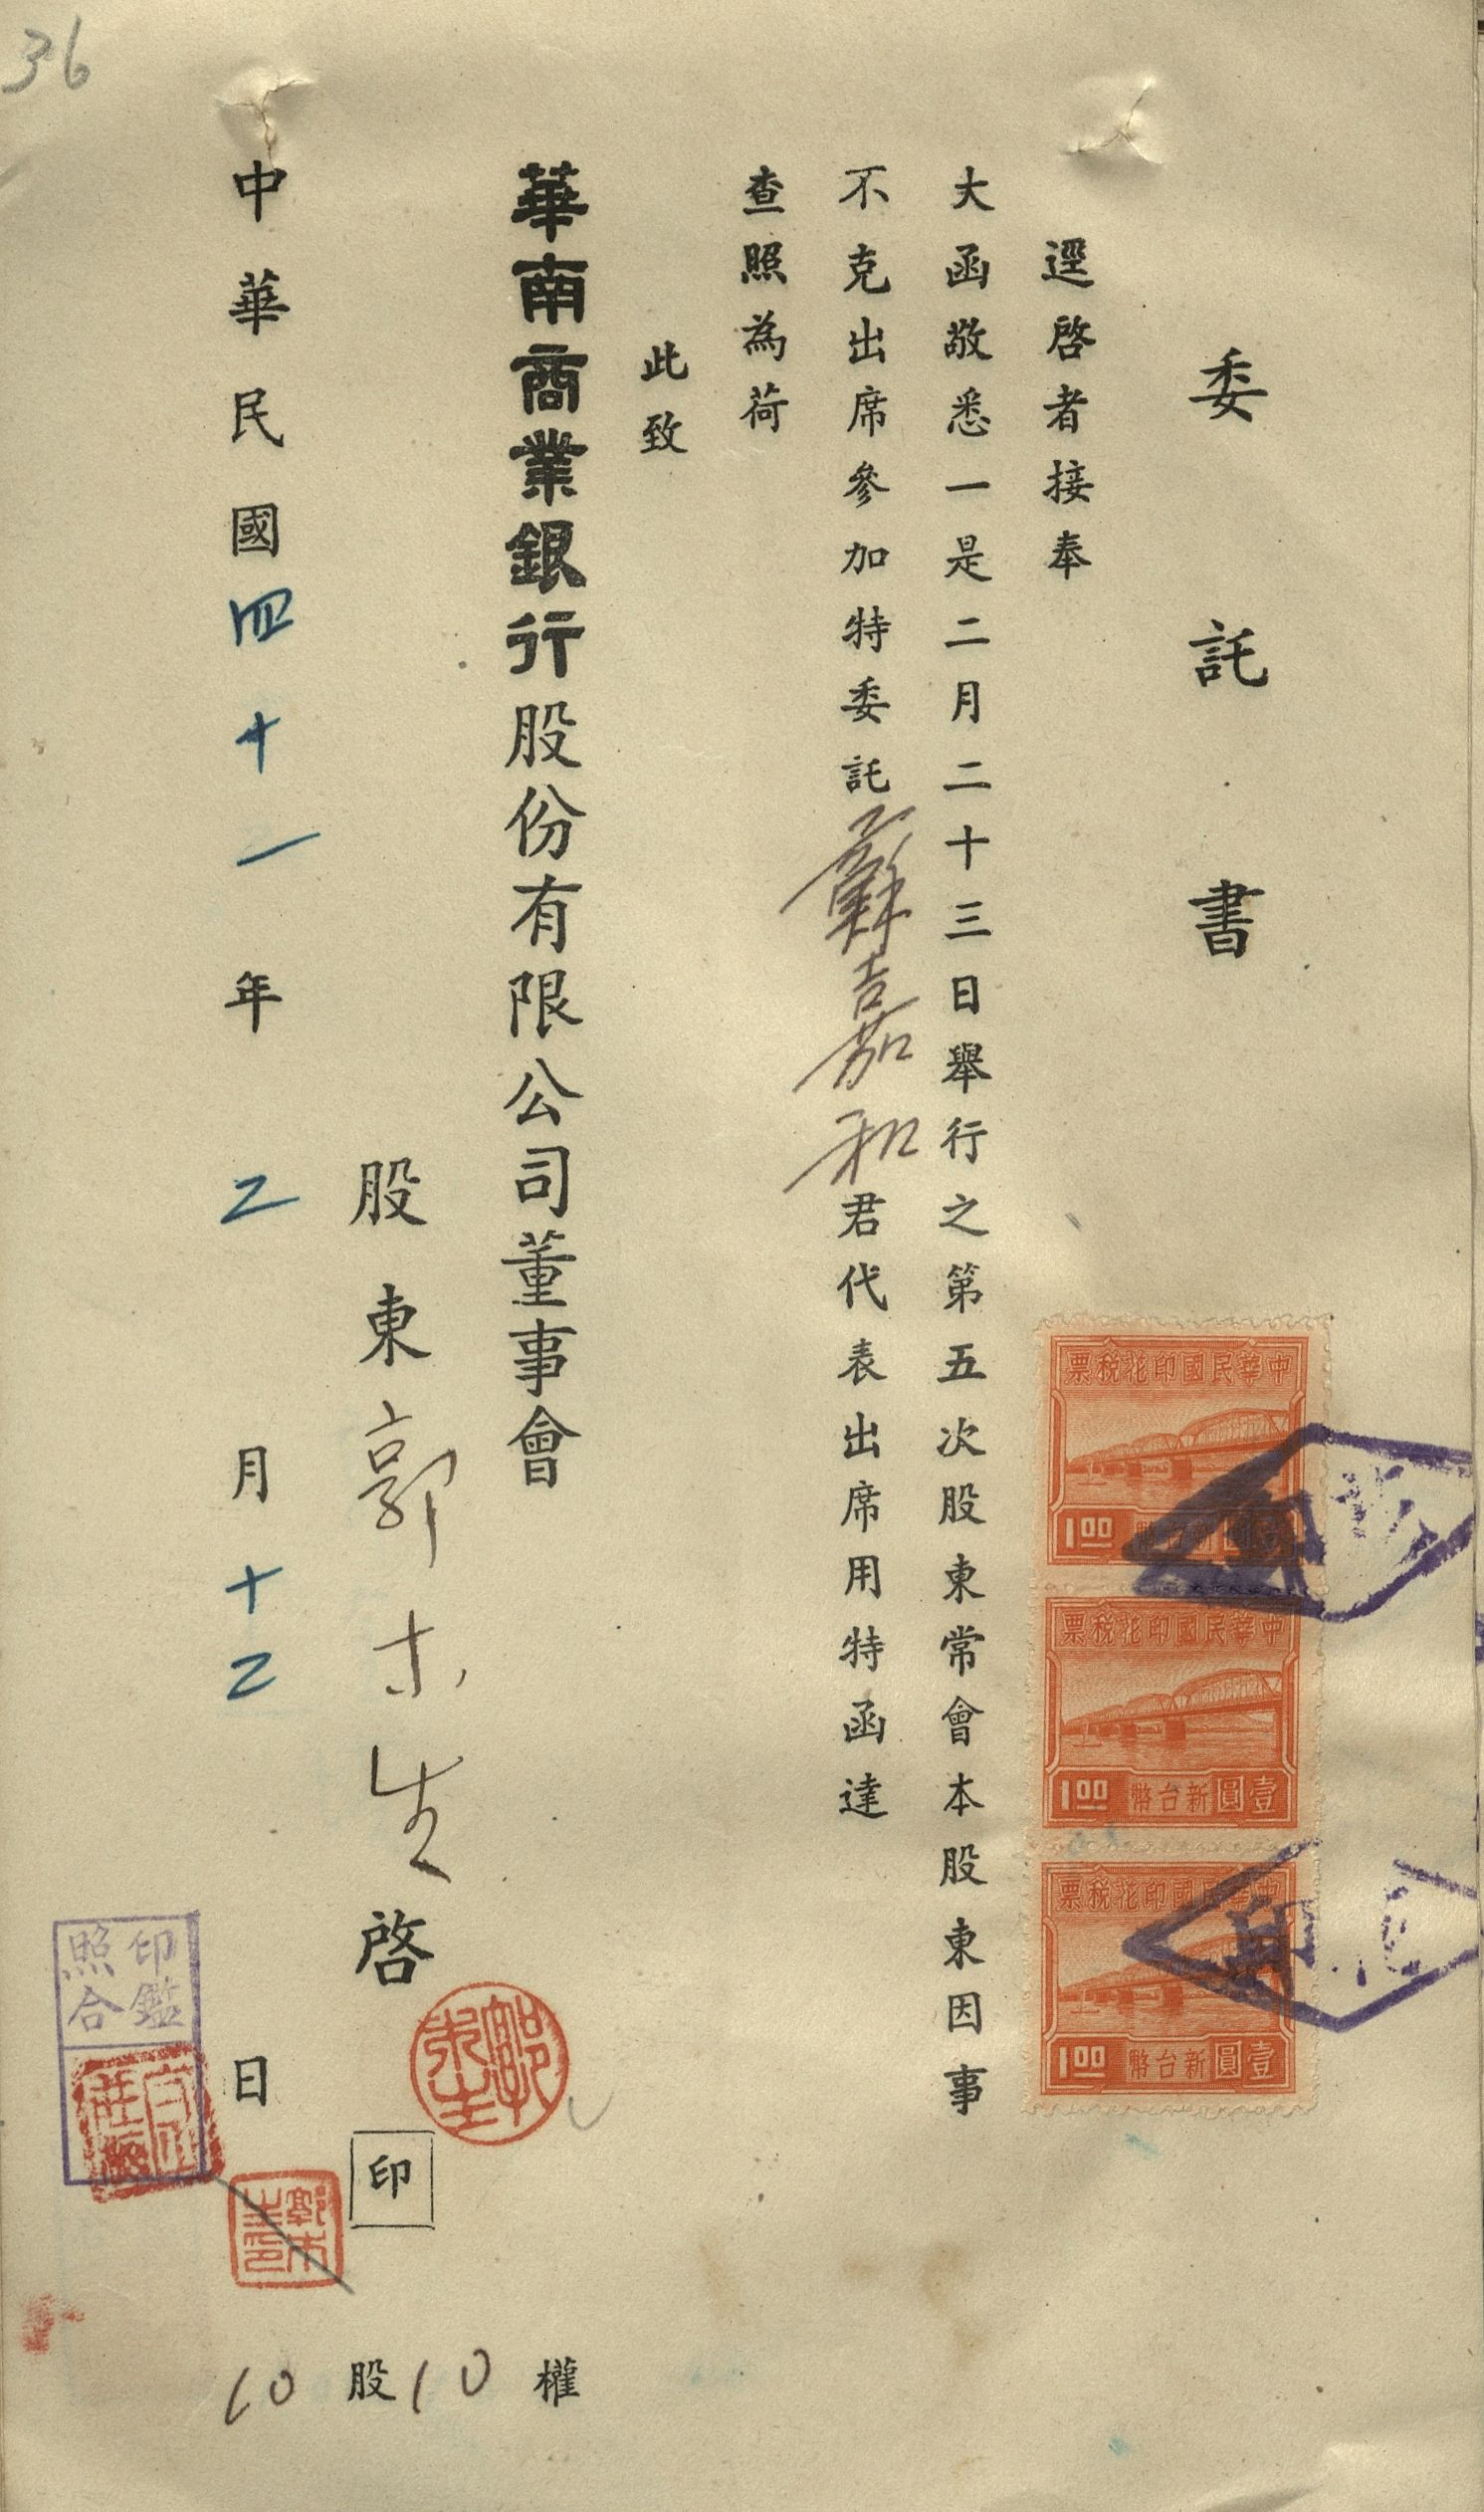 36
委託書
逕啓者接奉
大函敬悉一是二月二十三日舉行之第五次股東常會本股東因事
不克出席參加特委託蘇嘉和君代表出席用特函達
查照為荷
此致
華南商業銀行股份有限公司董事會
股東郭木生啓
印
中華民國四十一年二月十二日
10股10權
中華民國印花稅票
1.00
中華民國印花稅票
壹圓新台幣
1.00
中華民國印花稅票
壹圓新台幣
1.00
印鑑
照合
郭木生
郭木生印